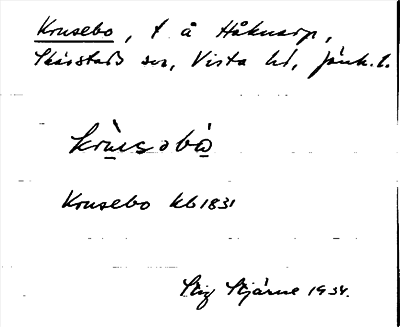 Krusebo, t å Håknarp,
Skärstads sn, Vista hd, Jönk. l.
krù̱səbò̱
Krusebo kb 1831
Stig Stjärne 1934.